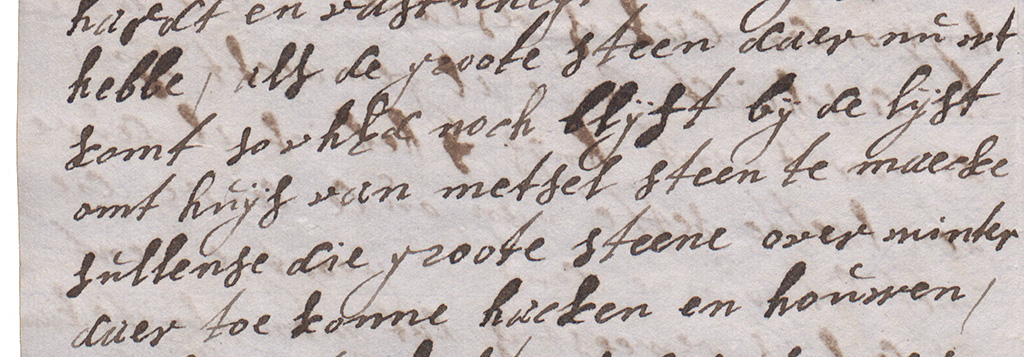 hardt en
hebbe, als de groote steen daer nu wt
komt so vhEd noch blijft bij de lijst
omt huijs van metsel steen te maecke
sullense die groote steene over winter
daer toe konne hacken en houwen,